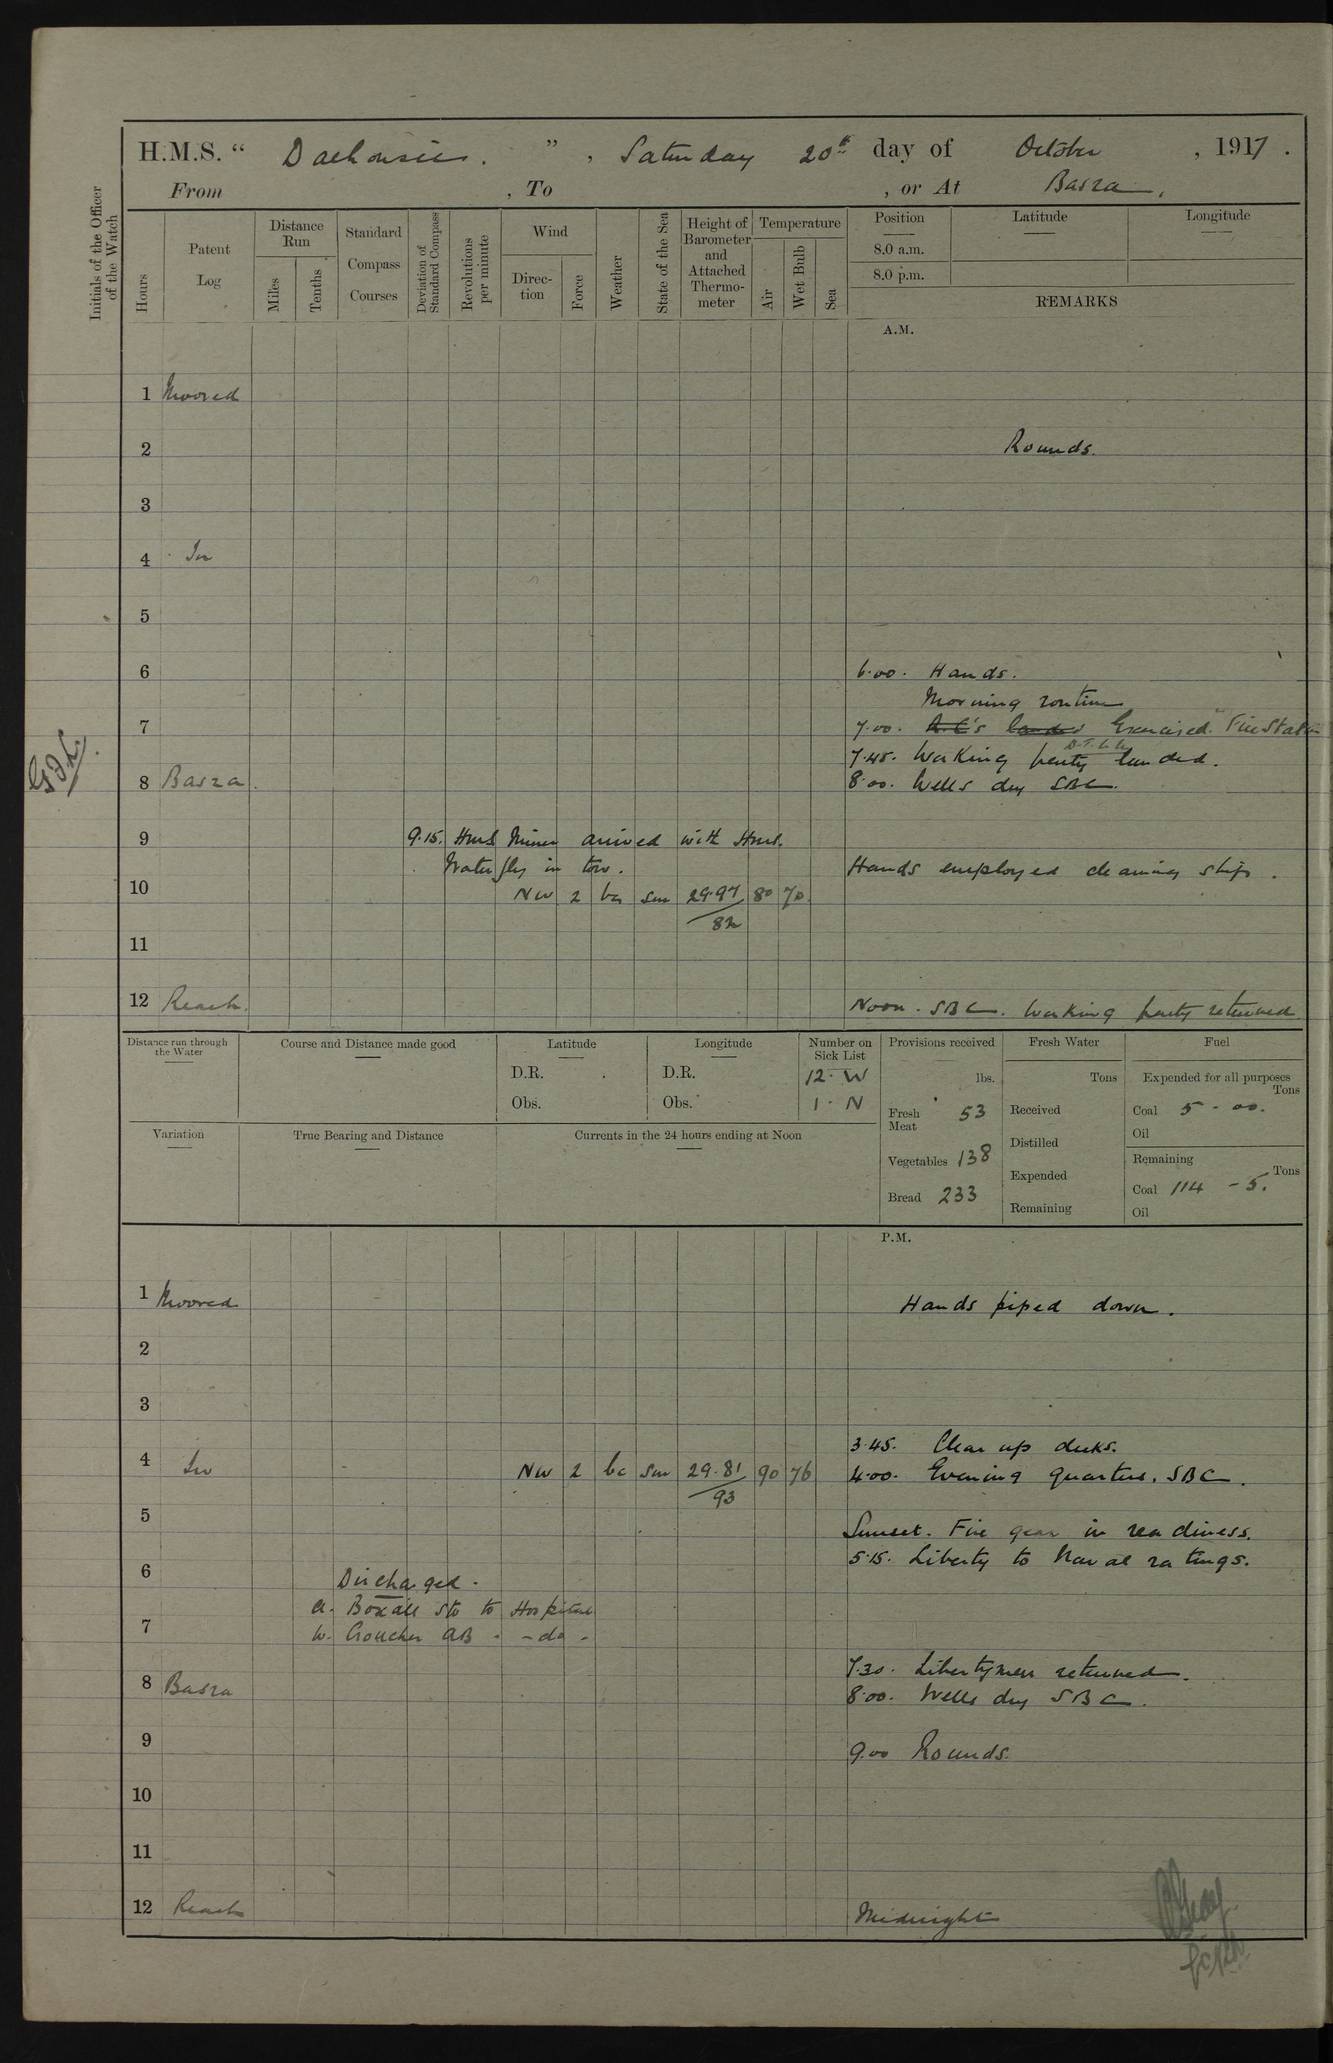 H.M.S. “ Dalhousie. ” , Saturday 20th day of October , 1917 .
From , To , or At Basra ,
Initials of the Officer of the Watch
Hours
Patent Log
Distance Run
Miles
Tenths
Standard Compass Courses
Deviation of Standard Compass
Revolutions per minute
Wind
Direction
Force
Weather
State of the Sea
Height of Barometer and Attached Thermometer
Temperature
Air
Wet Bulb
Sea
Position
Latitude
Longitude
8.0 a.m.
8.0 p.m.
REMARKS
A.M.
1 Moored
2 Rounds.
3
4 In
5
6 6.00. Hands.
Morning routine
7 7.00. Exercised "Fire Station
7.45. Working party landed.
8 Basra. 8.00. Wells dry SBC.
9 9.15. HMS Miner arrived with HMS.
Waterfly in tow. Hands employed cleaning ship.
10 NW 2 bc sm 29.97 80 70
82
11
12 Reach. Noon. SBC. Working party returned
Distance run through the Water
Course and Distance made good
Latitude
D.R.
Obs.
Longitude
D.R.
Obs.
Number on Sick List
12. W
1. N
Provisions received
lbs.
Fresh Meat 53
Vegetables 138
Bread 233
Fresh Water
Tons
Received
Distilled
Expended
Remaining
Fuel
Expended for all purposes
Tons
Coal 5 - 00.
Oil
Remaining
Tons
Coal 114 - 5.
Oil
Variation
True Bearing and Distance
Currents in the 24 hours ending at Noon
P.M.
1 Moored Hands piped down.
2
3
3.45. Clear up decks.
4 In NW 2 bc sm 29.81 90 76 4.00. Evening quarters. SBC.
93
5 Sunset. Fire gear in readiness.
5.15. Liberty to Naval ratings.
6 Discharged.
A. Boxall Sto to Hospital
7 W. Croucher AB - - do -
7.30. Libertymen returned.
8 Basra 8.00. Wells dry SBC.
9 9.00 Rounds.
10
11
12 Reach Midnight